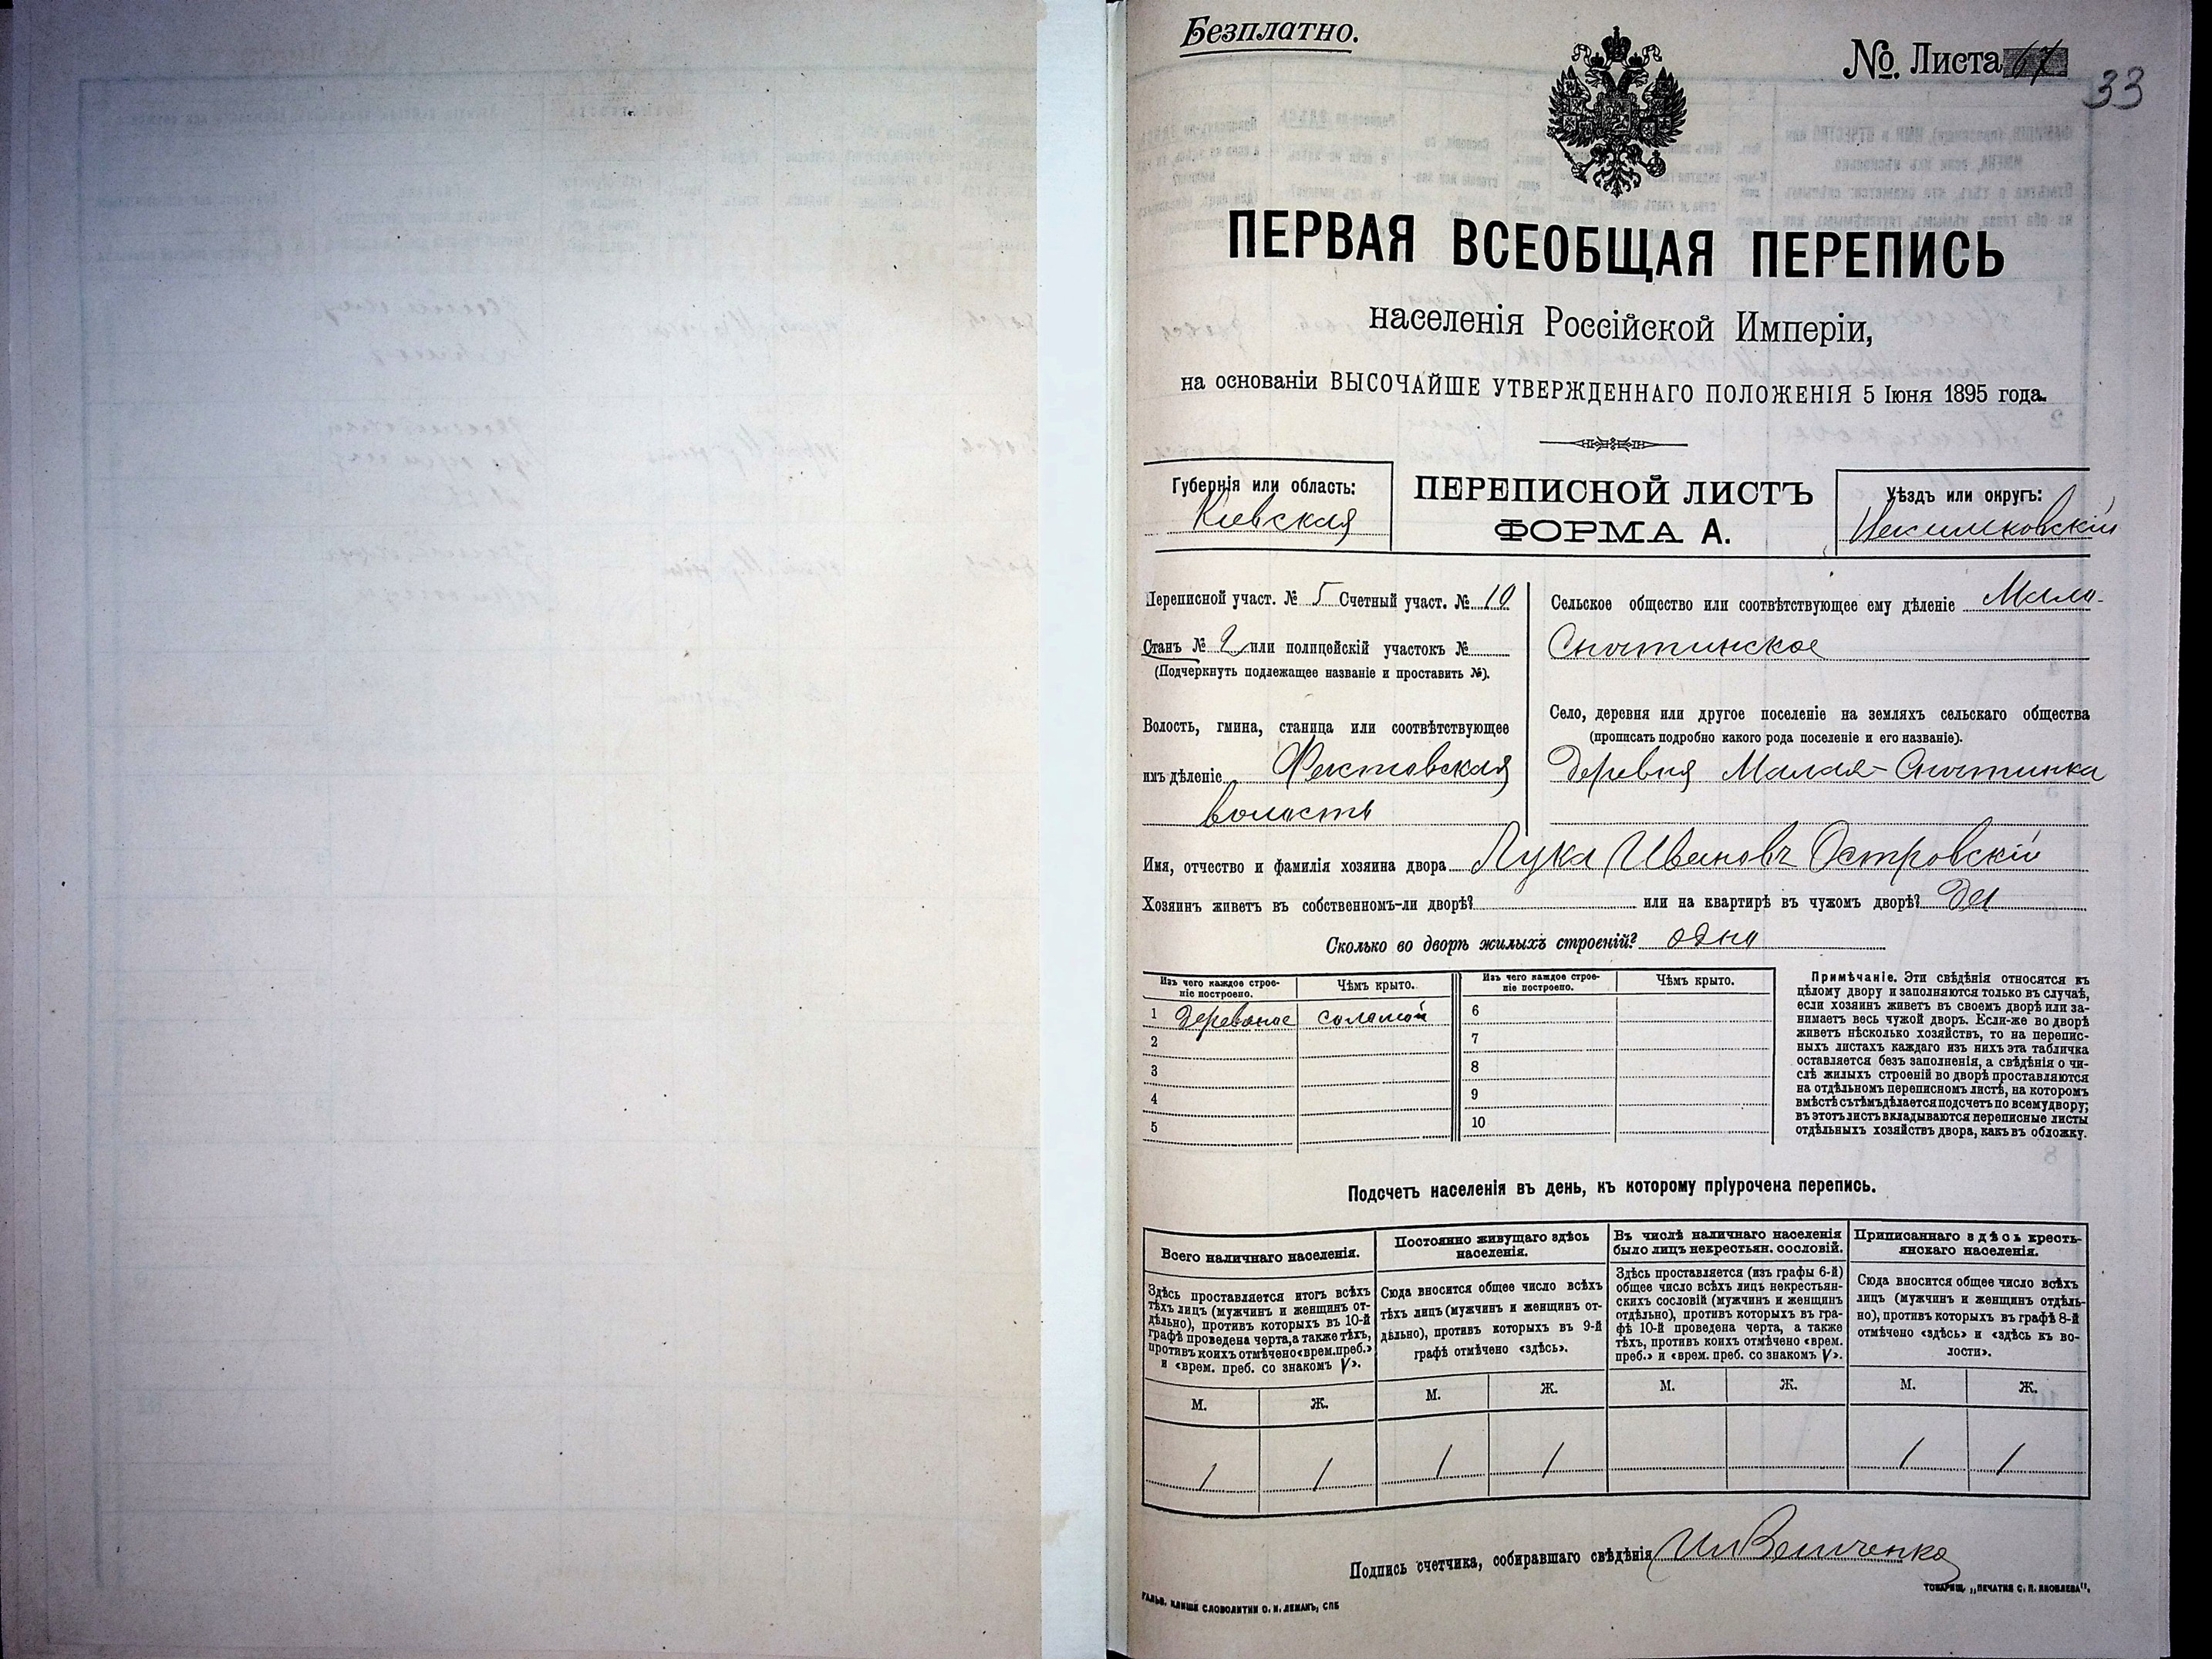 Безплатно.
№ Листа 67
33
ПЕРВАЯ ВСЕОБЩАЯ ПЕРЕПИСЬ
населенія Россійской Имперіи,
на основаніи ВЫСОЧАЙШЕ УТВЕРЖДЕННАГО ПОЛОЖЕНІЯ 5 Іюня 1895 года.
Губернія или область:
Кіевская
ПЕРЕПИСНОЙ ЛИСТЪ
ФОРМА А.
Уѣздъ или округъ:
Переписной участ. № 5 Счетный участ. № 10
Станъ № 2 или полицейскій участокъ №
(Подчеркнуть подлежащее названіе и проставить №).
Волость, гмина, станица или соотвѣтствующее
имъ дѣленіе Фастовская
волость
Сельское общество или соотвѣтствующее ему дѣленіе Мало-
Снѣтинское
Село, деревня или другое поселеніе на земляхъ сельскаго общества
(прописать подробно какого рода поселеніе и его названіе).
Деревня Малая-Снѣтинка
Имя, отчество и фамилія хозяина двора Лука Ивановъ Островскій
Хозяинъ живетъ въ собственномъ-ли дворѣ? или на квартирѣ въ чужомъ дворѣ? Да
Сколько во дворѣ жилыхъ строеній? одно
Изъ чего каждое строе-
ніе построено.
Чѣмъ крыто.
Изъ чего каждое строе-
ніе построено.
Чѣмъ крыто.
1 Деревяное соломой 6
2 7
3 8
4 9
5 10
Примѣчаніе. Эти свѣдѣнія относятся къ
цѣлому двору и заполняются только въ случаѣ,
если хозяинъ живетъ въ своемъ дворѣ или за-
нимаетъ весь чужой дворъ. Если-же во дворѣ
живетъ нѣсколько хозяйствъ, то на перепис-
ныхъ листахъ каждаго изъ нихъ эта табличка
оставляется безъ заполненія, а свѣдѣнія о чи-
слѣ жилыхъ строеній во дворѣ проставляются
на отдѣльномъ переписномъ листѣ, на которомъ
вмѣстѣ съ тѣмъ дѣлается подсчетъ по всему двору;
въ этотъ листъ вкладываются переписные листы
отдѣльныхъ хозяйствъ двора, какъ въ обложку.
Подсчетъ населенія въ день, къ которому пріурочена перепись.
Всего наличнаго населенія.
Здѣсь проставляется итогъ всѣхъ
тѣхъ лицъ (мужчинъ и женщинъ от-
дѣльно), противъ которыхъ въ 10-й
графѣ проведена черта, а также тѣхъ,
противъ коихъ отмѣчено «врем. преб.»
и «врем. преб. со знакомъ V».
Постоянно живущаго здѣсь
населенія.
Сюда вносится общее число всѣхъ
тѣхъ лицъ (мужчинъ и женщинъ от-
дѣльно), противъ которыхъ въ 9-й
графѣ отмѣчено «здѣсь».
Въ числѣ наличнаго населенія
было лицъ некрестьян. сословій.
Здѣсь проставляется (изъ графы 6-й)
общее число всѣхъ лицъ некрестьян-
скихъ сословій (мужчинъ и женщинъ
отдѣльно), противъ которыхъ въ гра-
фѣ 10-й проведена черта, а также
тѣхъ, противъ коихъ отмѣчено «врем.
преб.» и «врем. преб. со знакомъ V».
Приписаннаго здѣсь кресть-
янскаго населенія.
Сюда вносится общее число всѣхъ
лицъ (мужчинъ и женщинъ отдѣль-
но), противъ которыхъ въ графѣ 8-й
отмѣчено «здѣсь» и «здѣсь къ во-
лости».
М. Ж. М. Ж. М. Ж. М. Ж.
1 1 1 1 1 1
Подпись счетчика, собиравшаго свѣдѣнія
ГАЛЬВ. КЛИШЕ СЛОВОЛИТНИ О. И. ЛЕМАНЪ, СПБ
ТОВАРИЩ. „ПЕЧАТНЯ С. П. ЯКОВЛЕВА“.